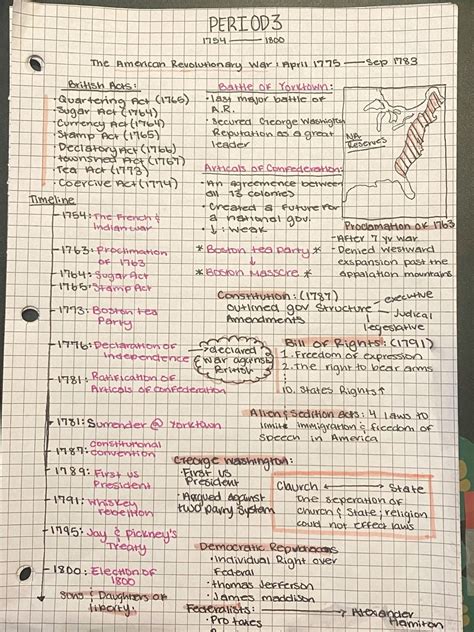 PERIOD 3
1754 — 1800
The American Revolutionary War: April 1775 — Sep 1783
British Acts:
• Quartering Act (1765)
• Sugar Act (1764)
• Currency Act (1764)
• Stamp Act (1765)
• Declatory Act (1766)
• Townsned Act (1767)
• Tea Act (1773)
• Coercive Act (1774)
Battle of Yorktown:
• last major battle of
A.R.
• secured George Washington
Reputation as a great
leader
Articals of Confederation:
• An agreemence between
all 13 colonies
• Created a future for
a national gov.
• ↓: weak
NA
Reserves
Proclamation of 1763
- After 7 yr war
- Denied westward
expansion past the
appalation mountains
*Boston tea party*
*Boston Massacre*
Timeline
1754: The French &
Indian war
1763: Proclimation
of 1763
1764: Sugar Act
1765: Stamp Act
1773: Boston tea
Party
1776: Declaration of
Independence
→ declared
war against
British
1781: Ratification of
Articals of confederation
1781: Surrender @ Yorktown
1787: constitutional
convention
1789: First US
President
1791: whiskey
rebellion
1795: Jay & pickney's
Treaty
1800: Election of
1800
Sons & Daughters of
liberty:
Constitution: (1787)
outlined gov structure
Amendments
executive
Judical
legeslative
Bill of Rights: (1791)
1. Freedom of expression
2. The right to bear arms
10. States Rights ↑
Alien & Sedition Acts: 4 laws to
limite immigration & freedom of
speech in America
George Washington:
• First US
President
• Argued against
two party system
Church ↔ State
The seperation of
church & state; religion
could not effect laws
Democratic Republicans
• Individual Right over
Federal
• Thomas Jefferson
• James maddison
Federalists:
• Pro taxes
→ Alexander
Hamilton